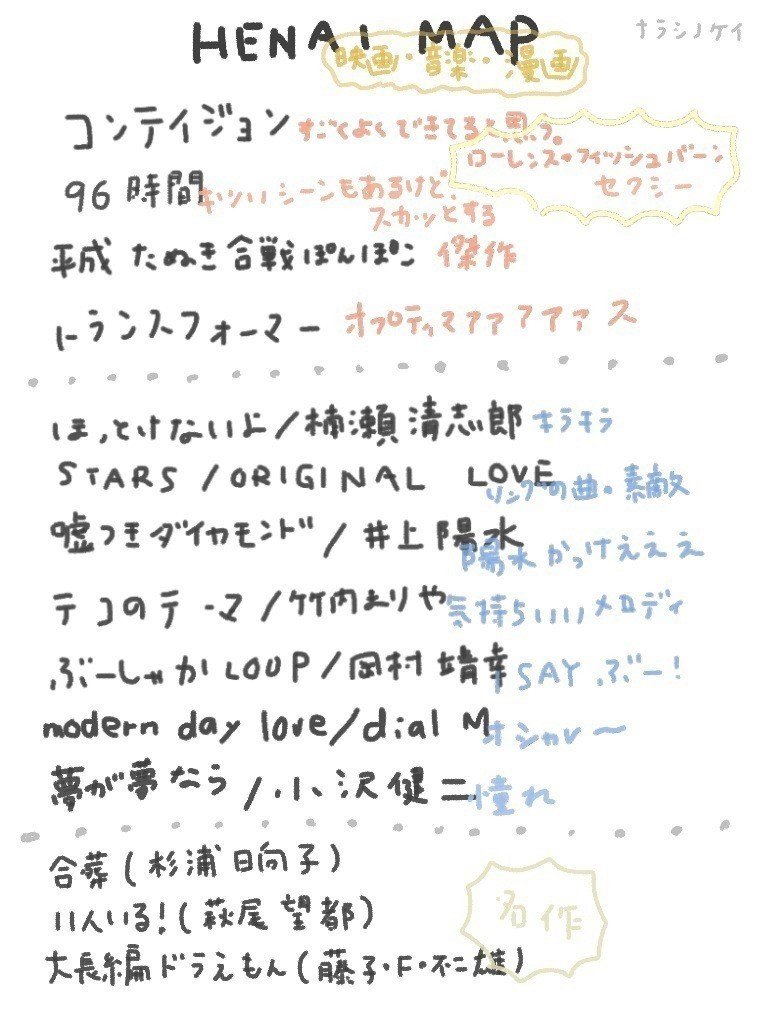 HENAI MAP
ナラシノケイ
映画・音楽・漫画
コンテイジョン すごくよくできてると思う。
ローレンス・フィッシュバーン
セクシー
96時間 キツいシーンもあるけど、
スカッとする
平成たぬき合戦ぽんぽこ 傑作
トランスフォーマー オプティマァァァァァス
ほっとけないよ/楠瀬清志郎 キラキラ
STARS/ORIGINAL LOVE リングの曲。素敵
嘘つきダイヤモンド/井上陽水 陽水かっけぇぇぇ
テコのテーマ/竹内まりや 気持ちいいメロディ
ぶーしゃかLOOP/岡村靖幸 SAYぶー!
modern day love/dial M オシャレ〜
夢が夢なら/小沢健二 憧れ
合葬(杉浦日向子)
11人いる!(萩尾望都)
名作
大長編ドラえもん(藤子・F・不二雄)